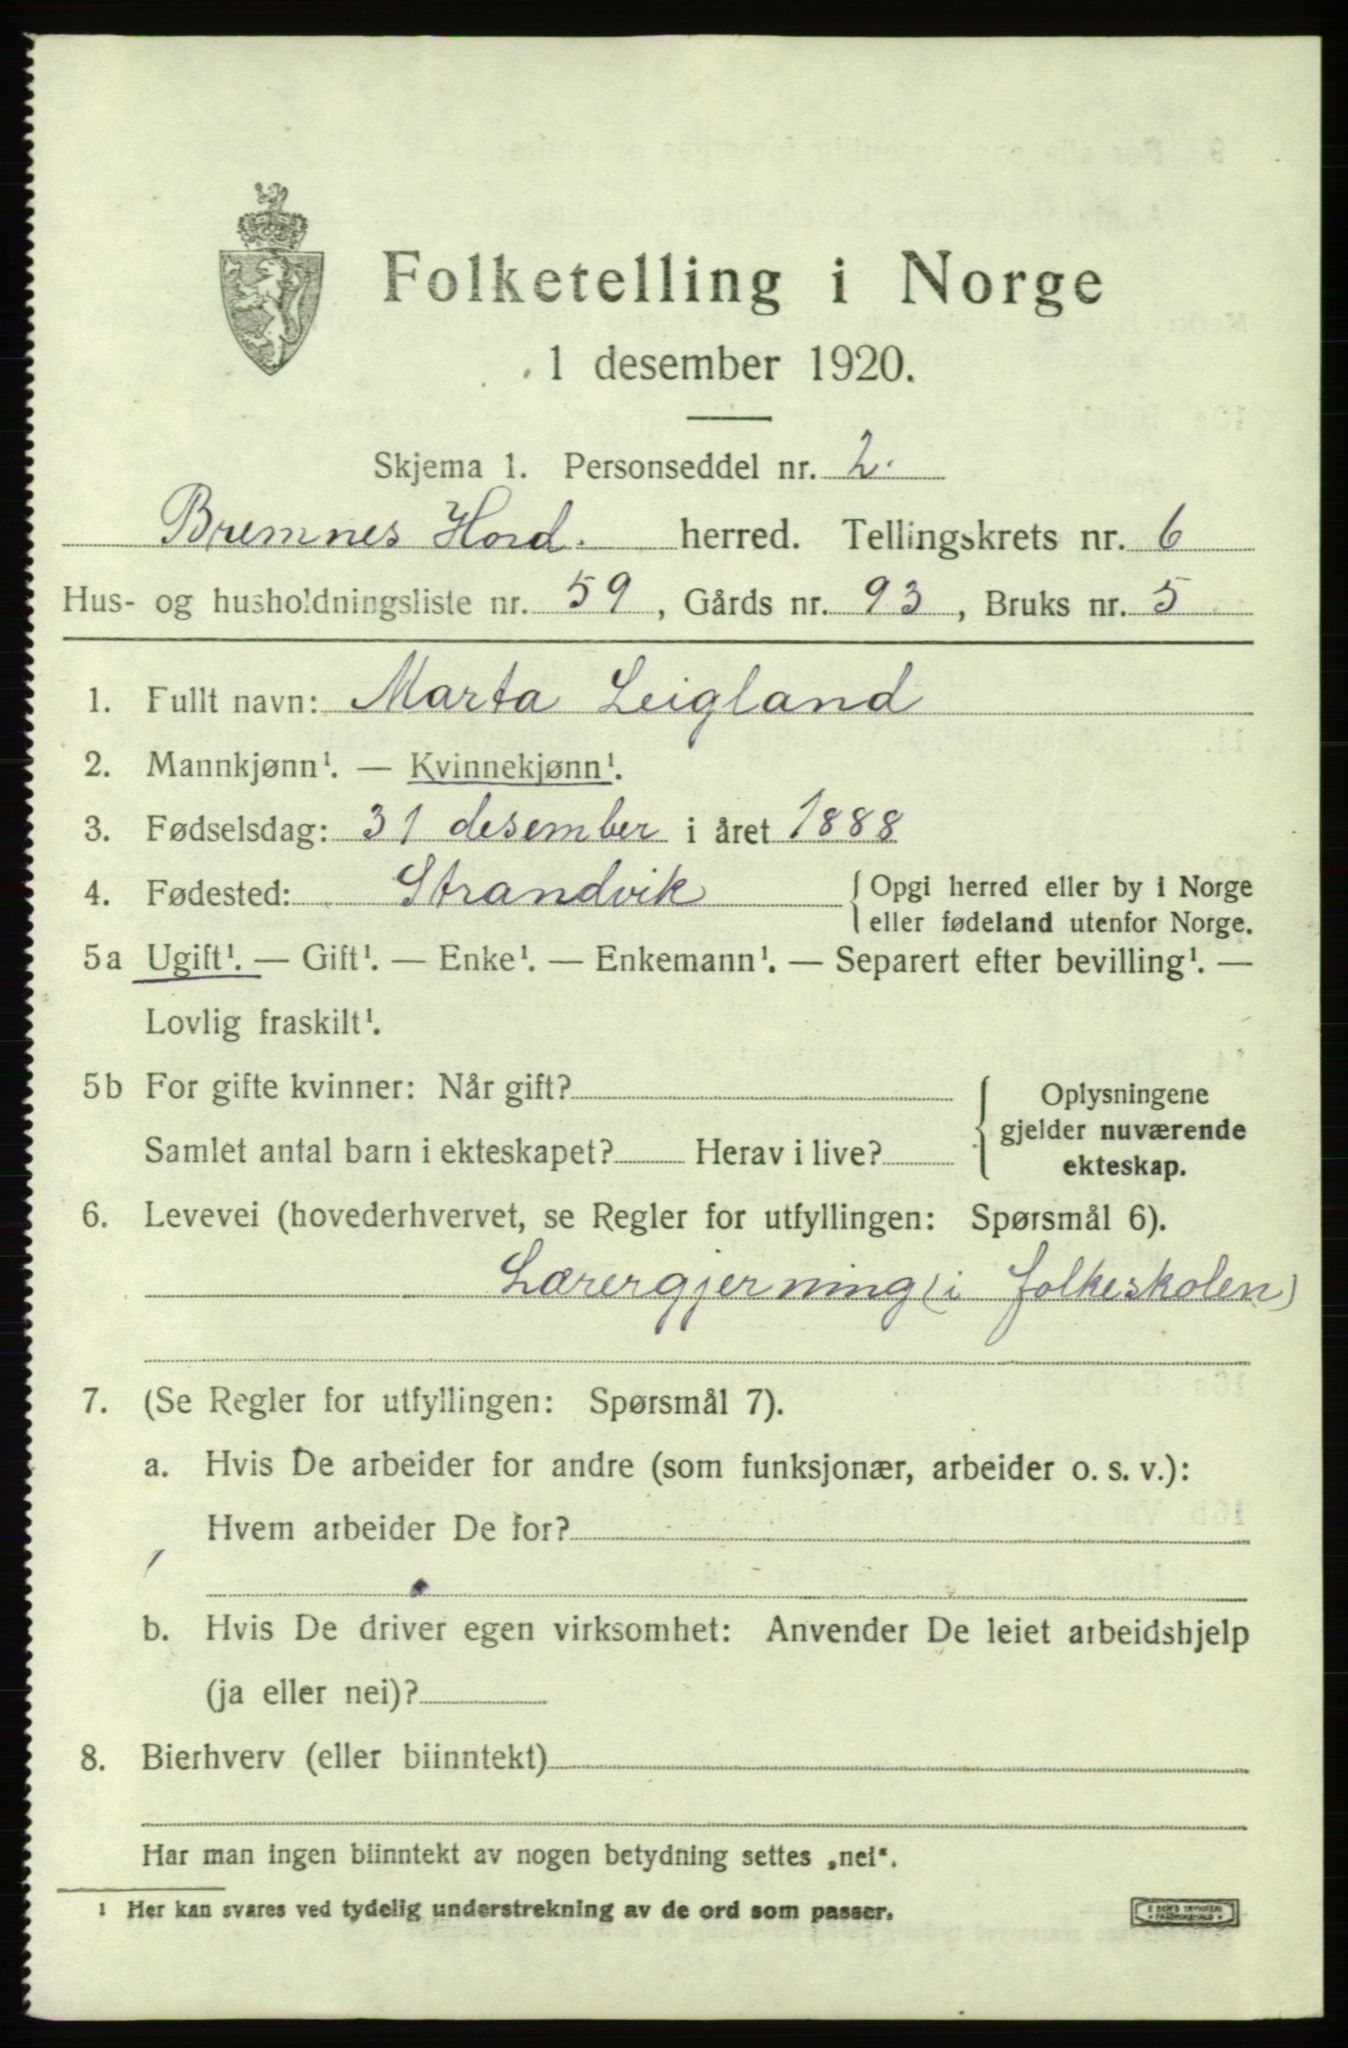 Folketelling i Norge
1 desember 1920.
Skjema 1. Personseddel nr. 2.
Bremnes Hord. herred. Tellingskrets nr. 6
Hus- og husholdningsliste nr. 59, Gårds nr. 93, Bruks nr. 5
1. Fullt navn: Marta Leigland
2. Mannkjønn¹. — Kvinnekjønn¹.
3. Fødselsdag: 31 desember i året 1888
4. Fødested: Strandvik { Opgi herred eller by i Norge
eller fødeland utenfor Norge.
5a Ugift¹. — Gift¹. — Enke¹. — Enkemann¹. — Separert efter bevilling¹. —
Lovlig fraskilt¹.
5b For gifte kvinner: Når gift?
Samlet antal barn i ekteskapet? Herav i live?
Oplysningene
gjelder nuværende
ekteskap.
6. Levevei (hovederhvervet, se Regler for utfyllingen: Spørsmål 6).
Lærergjerning (i folkeskolen)
7. (Se Regler for utfyllingen: Spørsmål 7).
a. Hvis De arbeider for andre (som funksjonær, arbeider o. s. v.):
Hvem arbeider De for?
b. Hvis De driver egen virksomhet: Anvender De leiet arbeidshjelp
(ja eller nei)?
8. Bierhverv (eller biinntekt)
Har man ingen biinntekt av nogen betydning settes „nei“.
¹ Her kan svares ved tydelig understrekning av de ord som passer.